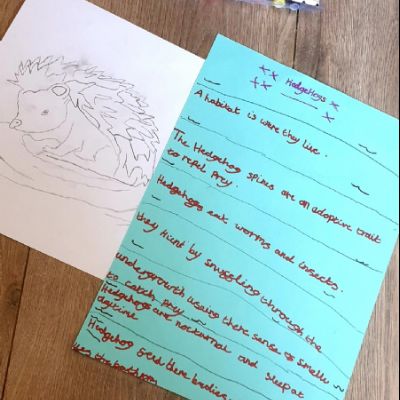 HedgeHogs
A habitat is were they live.
The Hedgehog spines are an adoptive trait
to repel Prey.
Hedgehogs eat worms and insects.
they hunt by snuggling through the
undergrowth useing there sense of smell
to catch prey
Hedgehogs are nocturnal and sleep at
daitime
Hedgehog feed there